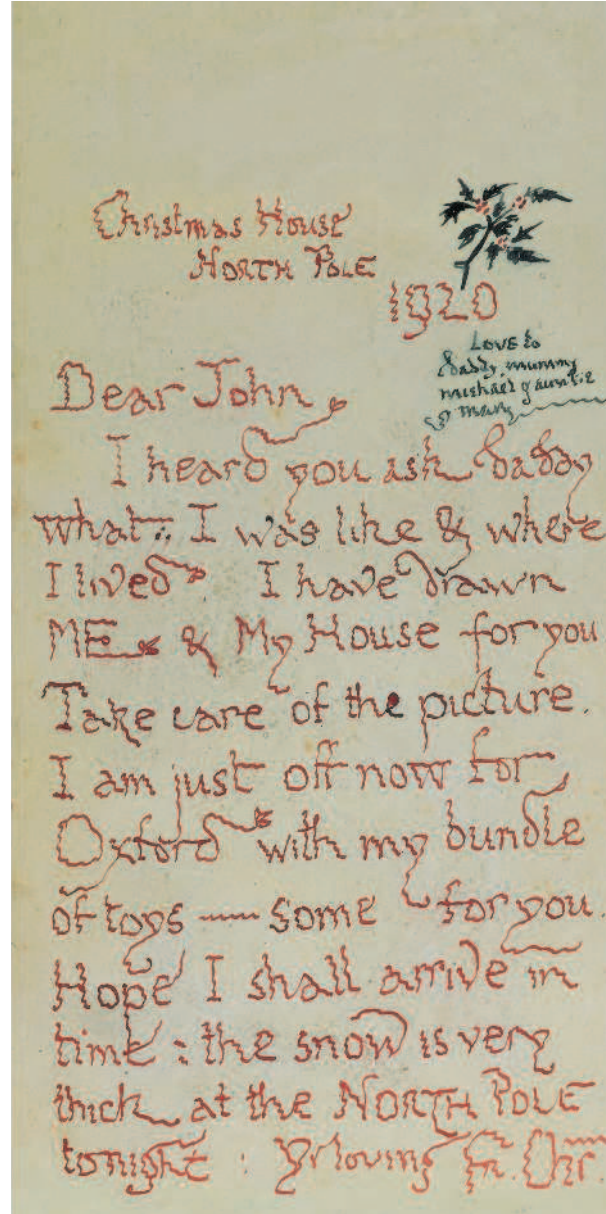 Christmas House
NORTH POLE
1920
LOVE to
daddy, mummy
michael & auntie
mary
Dear John
I heard you ask daddy
what I was like & where
I lived. I have drawn
ME & My House for you
Take care of the picture.
I am just off now for
Oxford with my bundle
of toys — some for you.
Hope I shall arrive in
time : the snow is very
thick at the NORTH POLE
tonight : Yr loving Fr. Chr.